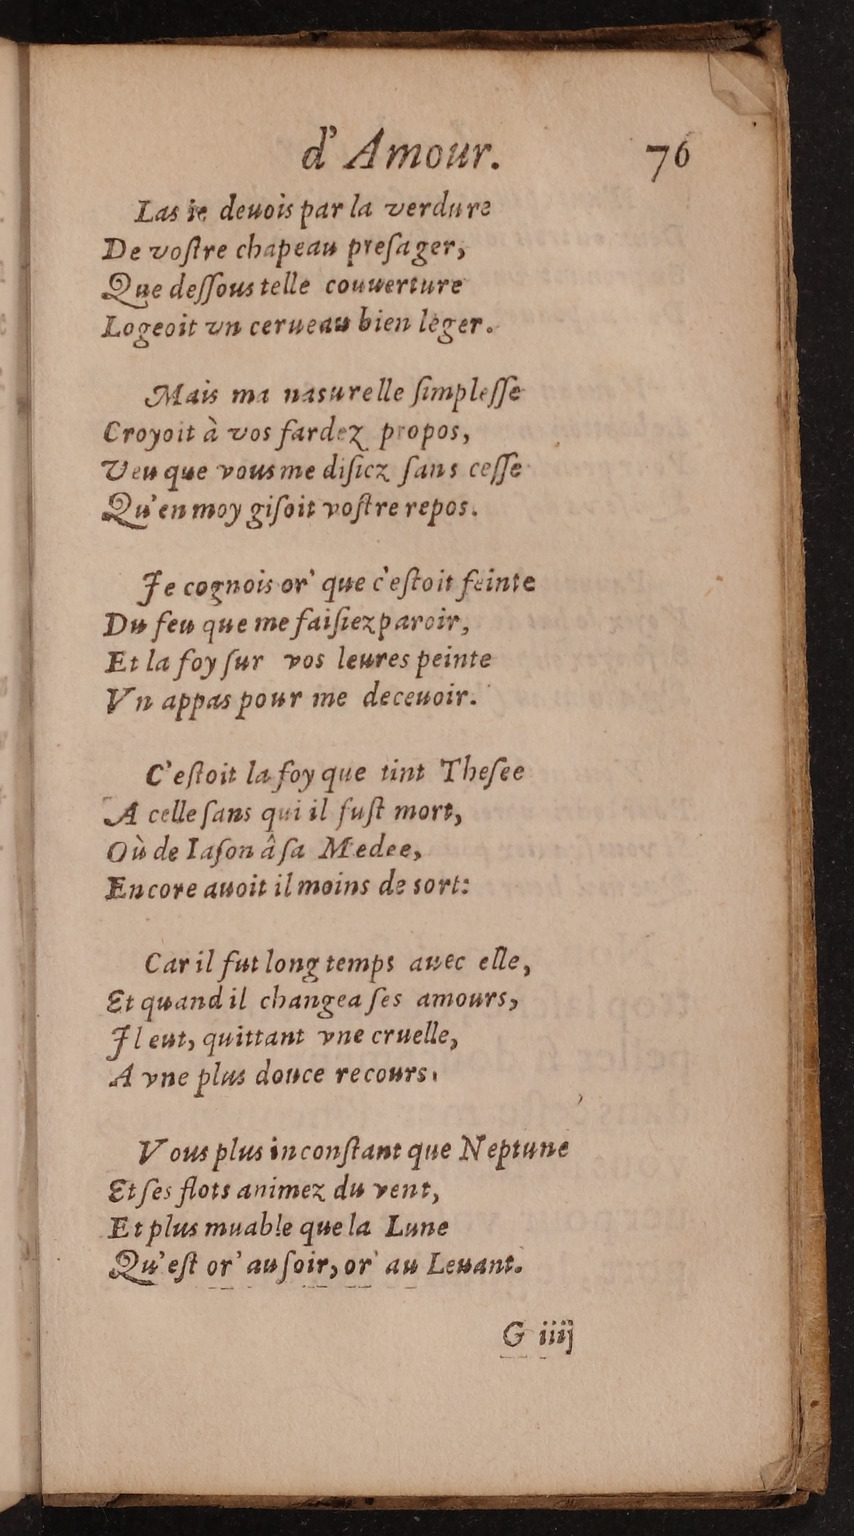 d' Amour. 76
Las ie deuois par la verdure
De voſtre chapeau preſager,
Que deſſous telle couuerture
Logeoit vn cerueau bien lèger.
Mais ma nasurelle ſimpleſſe
Croyoit à vos fardez propos,
Veu que vous me diſiez ſans ceſſe
Qu'en moy giſoit voſtre repos.
Je cognois or' que c'eſtoit feinte
Du feu que me faiſiez paroir,
Et la foy ſur vos leures peinte
Vn appas pour me deceuoir.
C'eſtoit la foy que tint Theſee
A celle ſans qui il fuſt mort,
Où de Iaſon â ſa Medee,
Encore auoit il moins de sort:
Car il fut long temps auec elle,
Et quand il changea ſes amours,
Il eut, quittant vne cruelle,
A vne plus douce recours.
Vous plus inconſtant que Neptune
Et ſes flots animez du vent,
Et plus muable que la Lune
Qu'eſt or' au ſoir, or' au Leuant.
G iiij